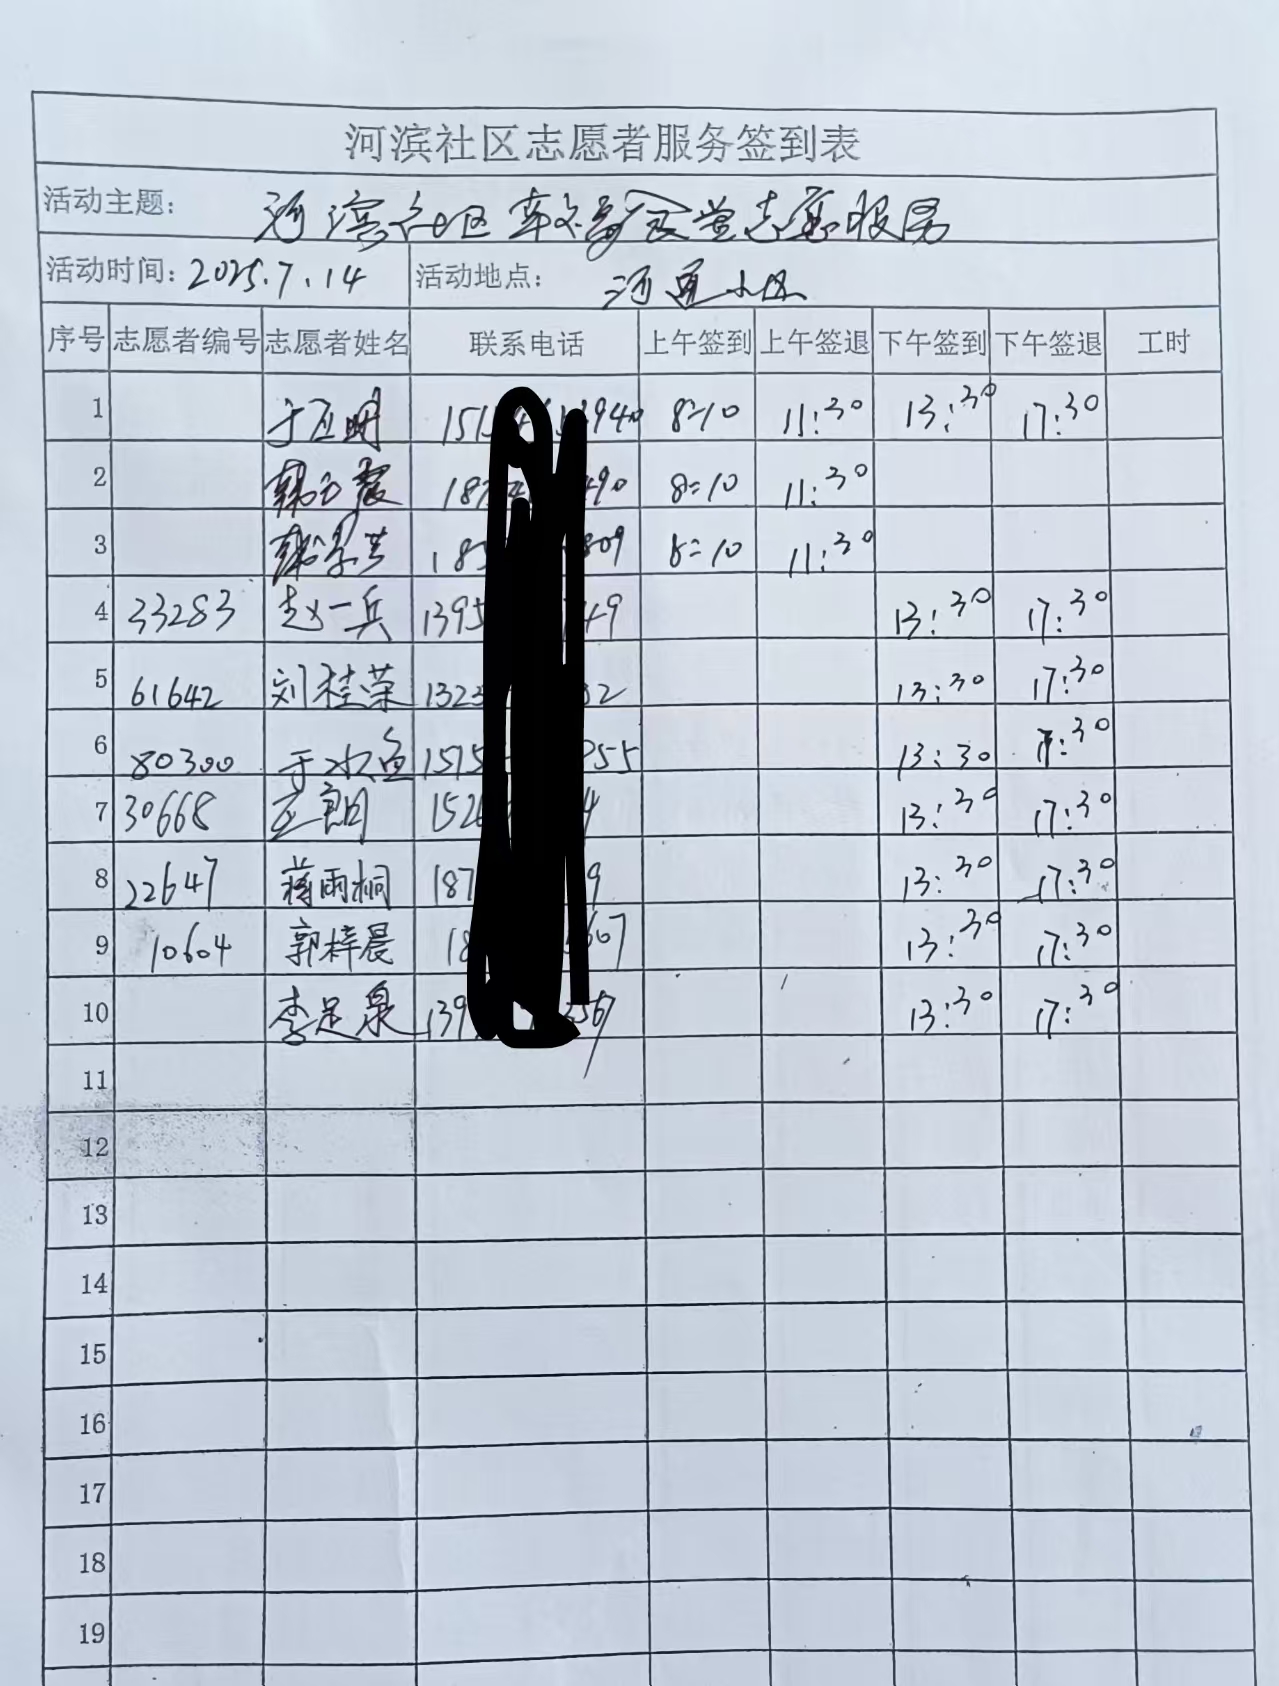 河滨社区志愿者服务签到表
活动主题: 河滨社区 食堂志愿服务
活动时间: 2025.7.14 活动地点: 河通小区
序号 志愿者编号 志愿者姓名 联系电话 上午签到 上午签退 下午签到 下午签退 工时
1 于 明 8:10 11:30 13:30 17:30
2 8:10 11:30
3 8:10 11:30
4 33283 赵一兵 1395 49 13:30 17:30
5 61642 刘桂荣 1323 32 13:30 17:30
6 80300 于水鱼 1515 255 13:30 17:30
7 30668 152 4 13:30 17:30
8 22647 蒋雨桐 187 9 13:30 17:30
9 10604 郭梓晨 18 607 13:30 17:30
10 李足泉 139 567 13:30 17:30
11
12
13
14
15
16
17
18
19